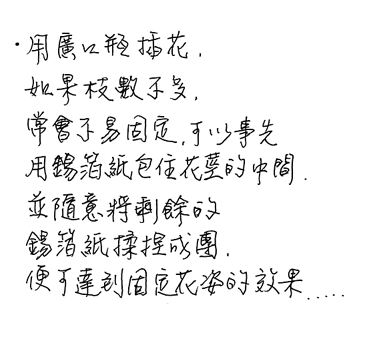 ·用廣口瓶插花，
如果枝數不多，
常會不易固定，可以事先
用錫箔紙包住花莖的中間．
並隨意將剩餘的
錫箔紙揉捏成團，
便可達到固定花姿的效果．．．．．